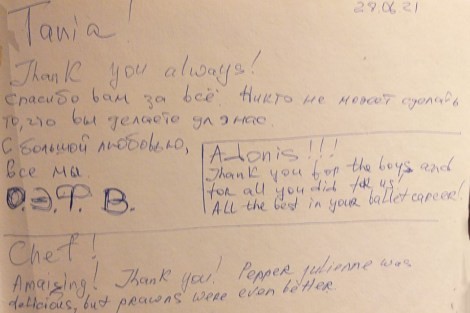 29.06.21
Tania!
Thank you always!
Спасибо вам за всё. Никто не может сделать
то, что вы делаете для нас.
С большой любовью,
все мы.
О.Э.Т. В.
Adonis!!!
Thank you for the boys and
for all you did for us!
All the best in your ballet career!
Chef!
Amaising! Thank you! Pepper julienne was
delicious, but prawns were even better